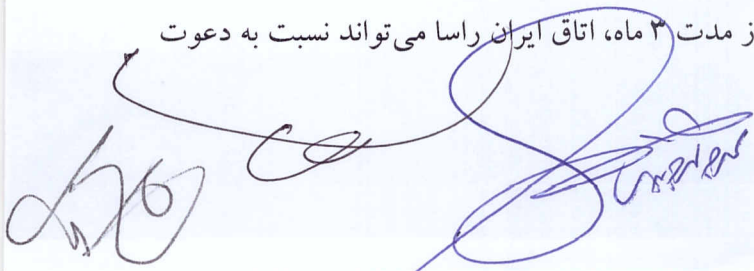 ز مدت ۳ ماه، اتاق ایران راسا می‌تواند نسبت به دعوت